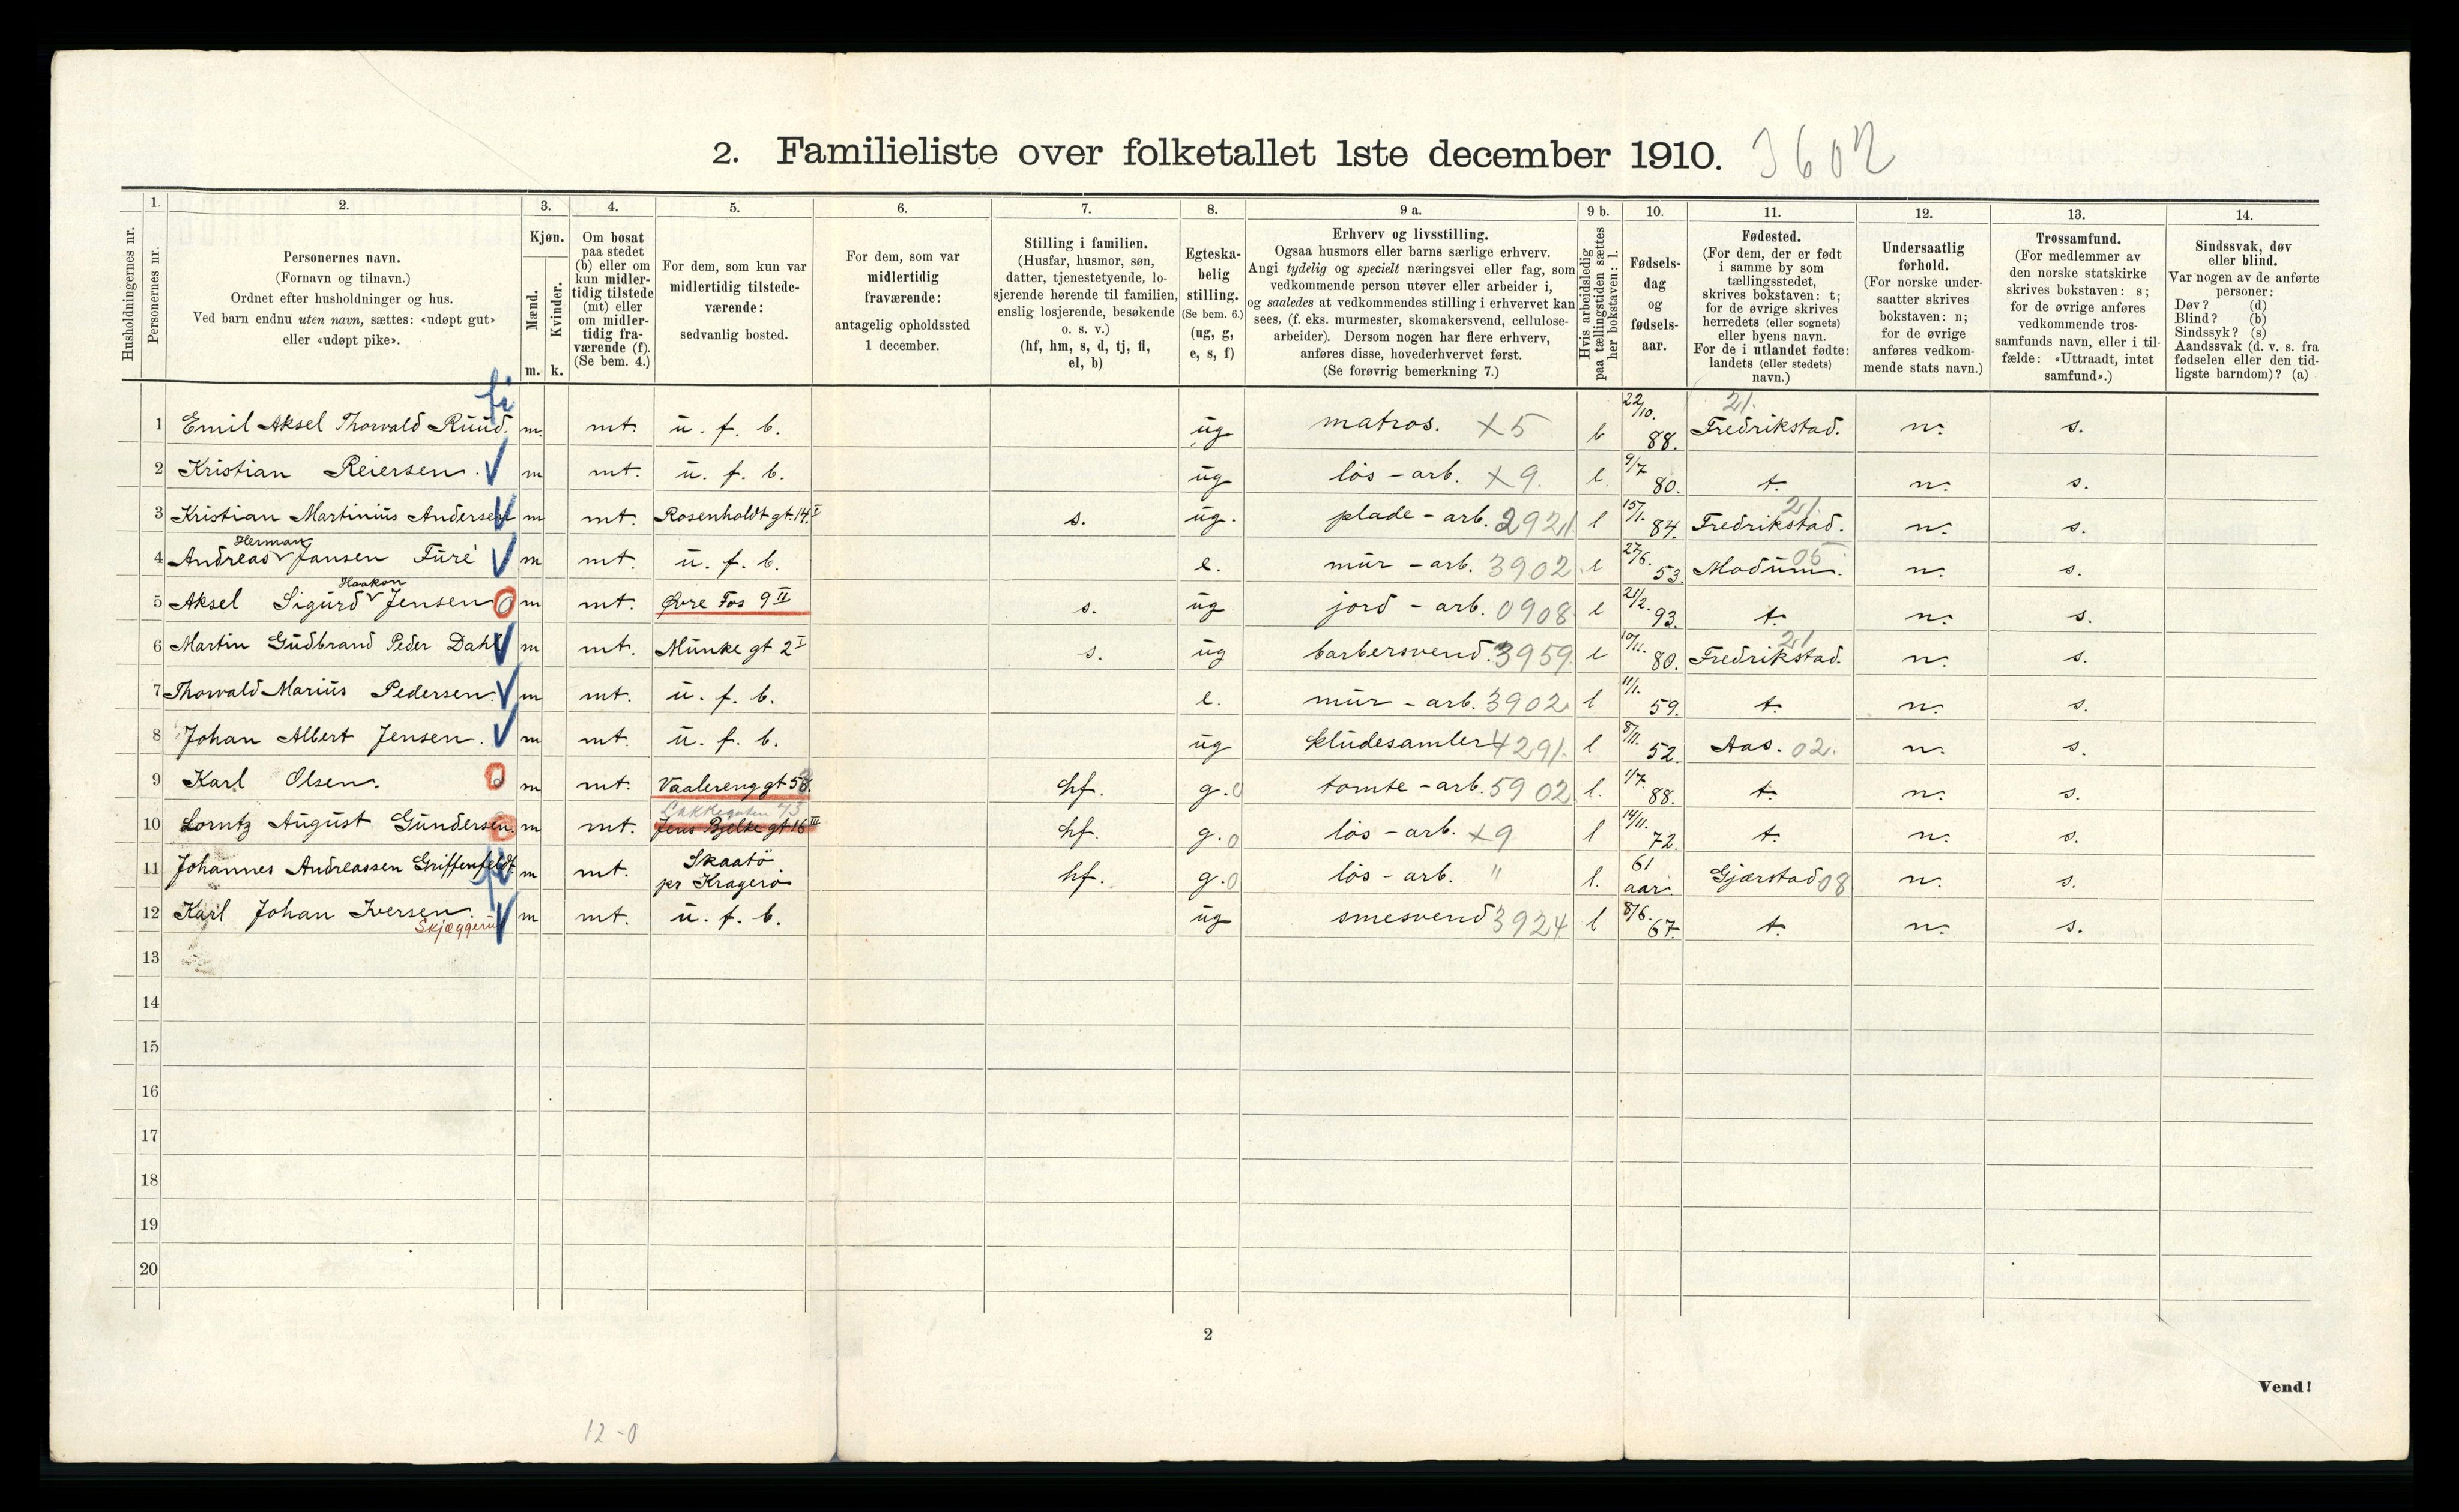 2. Familieliste over folketallet 1ste december 1910. 3602
Husholdningernes nr.
1. Personernes nr.
2. Personernes navn.
(Fornavn og tilnavn.)
Ordnet efter husholdninger og hus.
Ved barn endnu uten navn, sættes: «udøpt gut»
eller «udøpt pike».
3. Kjøn.
Mænd. Kvinder.
m. k.
4. Om bosat
paa stedet
(b) eller om
kun midler-
tidig tilstede
(mt) eller
om midler-
tidig fra-
værende (f).
(Se bem. 4.)
5. For dem, som kun var
midlertidig tilstede-
værende:
sedvanlig bosted.
6. For dem, som var
midlertidig
fraværende:
antagelig opholdssted
1 december.
7. Stilling i familien.
(Husfar, husmor, søn,
datter, tjenestetyende, lo-
sjerende hørende til familien,
enslig losjerende, besøkende
o. s. v.)
(hf, hm, s, d, tj, fl,
el, b)
8. Egteska-
belig
stilling.
(Se bem. 6.)
(ug, g,
e, s, f)
9 a. Erhverv og livsstilling.
Ogsaa husmors eller barns særlige erhverv.
Angi tydelig og specielt næringsvei eller fag, som
vedkommende person utøver eller arbeider i,
og saaledes at vedkommendes stilling i erhvervet kan
sees, (f. eks. murmester, skomakersvend, cellulose-
arbeider). Dersom nogen har flere erhverv,
anføres disse, hovederhvervet først.
(Se forøvrig bemerkning 7.)
9 b. Hvis arbeidsledig
paa tællingstiden sættes
her bokstaven: l.
10. Fødsels-
dag
og
fødsels-
aar.
11. Fødested.
(For dem, der er født
i samme by som
tællingsstedet,
skrives bokstaven: t;
for de øvrige skrives
herredets (eller sognets)
eller byens navn.
For de i utlandet fødte:
landets (eller stedets)
navn.)
12. Undersaatlig
forhold.
(For norske under-
saatter skrives
bokstaven: n;
for de øvrige
anføres vedkom-
mende stats navn.)
13. Trossamfund.
(For medlemmer av
den norske statskirke
skrives bokstaven: s;
for de øvrige anføres
vedkommende tros-
samfunds navn, eller i til-
fælde: «Uttraadt, intet
samfund».)
14. Sindssvak, døv
eller blind.
Var nogen av de anførte
personer:
Døv? (d)
Blind? (b)
Sindssyk? (s)
Aandssvak (d. v. s. fra
fødselen eller den tid-
ligste barndom)? (a)
1 Emil Aksel Thorvald Ruud. m. mt. u. f. b. ug matros. X5 b 22/10. 88. 21. Fredrikstad. n. s.
2 Kristian Reiersen. m mt. u. f. b. ug løs-arb. X9. l. 9/7 80. t. n. s.
3 Kristian Martinius Andersen m mt. Rosenholdt gt. 14. I s. ug. plade-arb. 2921 l 15/1. 84. Fredrikstad. 21. n. s.
4 Andreas Herman Jansen Furé m mt. u. f. b. e. mur-arb. 3902 l 27/6. 53. Modum. 05 n. s.
5 Aksel Sigurd Haakon Jensen m mt. Øvre Fos 9 II s. ug jord-arb. 0908 l 21/2. 93. t. n. s.
6 Martin Gudbrand Peder Dahl m mt. Munke gt 2 I s. ug barbersvend. 3959 l 10/11. 80. Fredrikstad. 21 n. s.
7 Thorvald Marius Pedersen. m mt. u. f. b. e. mur-arb. 3902 l 11/1. 59. t. n. s.
8 Johan Albert Jensen. m mt. u. f. b. ug kludesamler 4291. l 8/11. 52. Aas. 02. n. s.
9 Karl Olsen. m mt. Vaalereng gt 58. hf. g. 0 tomte-arb. 5902 l. 1/7. 88. t. n. s.
10 Lorntz August Gundersen. m mt. Jens Bjelke gt 16 III Lakkegaten hf. g. 0 løs-arb. X9 l 14/11. 72. t. n. s.
11 Johannes Andreassen Griffenfeldt. m mt. Skaatö
pr Kragerö hf. g. 0 løs-arb. " l. 61
aar. Gjærstad 08 n. s.
12 Karl Johan Iversen. m mt. u. f. b. ug smesvend 3924 l 8/6. 67. t. n. s.
13
14
15
16
17
18
19
20
2
Vend!
12-0